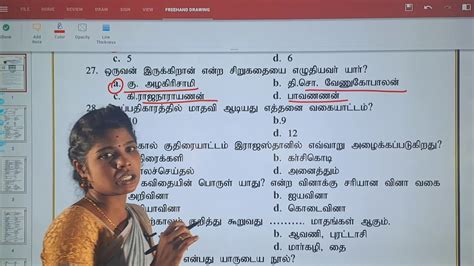 FILE HOME INSERT DRAW SLIDESHOW FREEHAND DRAWING
Color Opacity Line Thickness
c. 5 d. 6
27. ஒருவன் இருக்கிறான் என்ற சிறுகதையை எழுதியவர் யார்?
a. கு. அழகிரிசாமி b. தி.சொ. வேணுகோபாலன்
c. கி.ராஜநாராயணன் d. பாவண்ணன்
28. பதிகாரத்தில் மாதவி ஆடியது எத்தனை வகையாட்டம்?
10 b.9
d. 12
கால் குதிரையாட்டம் இராஜஸ்தானில் எவ்வாறு அழைக்கப்படுகிறது?
திரைக்களி b. கர்சிகொடி
லச்செய்தல் d. அனைத்தும்
கவிதையின் பொருள் யாது? என்ற வினாக்கு சரியான வினா வகை
அறிவினா b. ஐயவினா
யாவினா d. கொடைவினா
ற்காலம் குறித்து கூறுவது .......... மாதங்கள் ஆகும்.
b. ஆவணி, புரட்டாசி
d. மார்கழி, தை
என்பது யாருடைய நூல்?